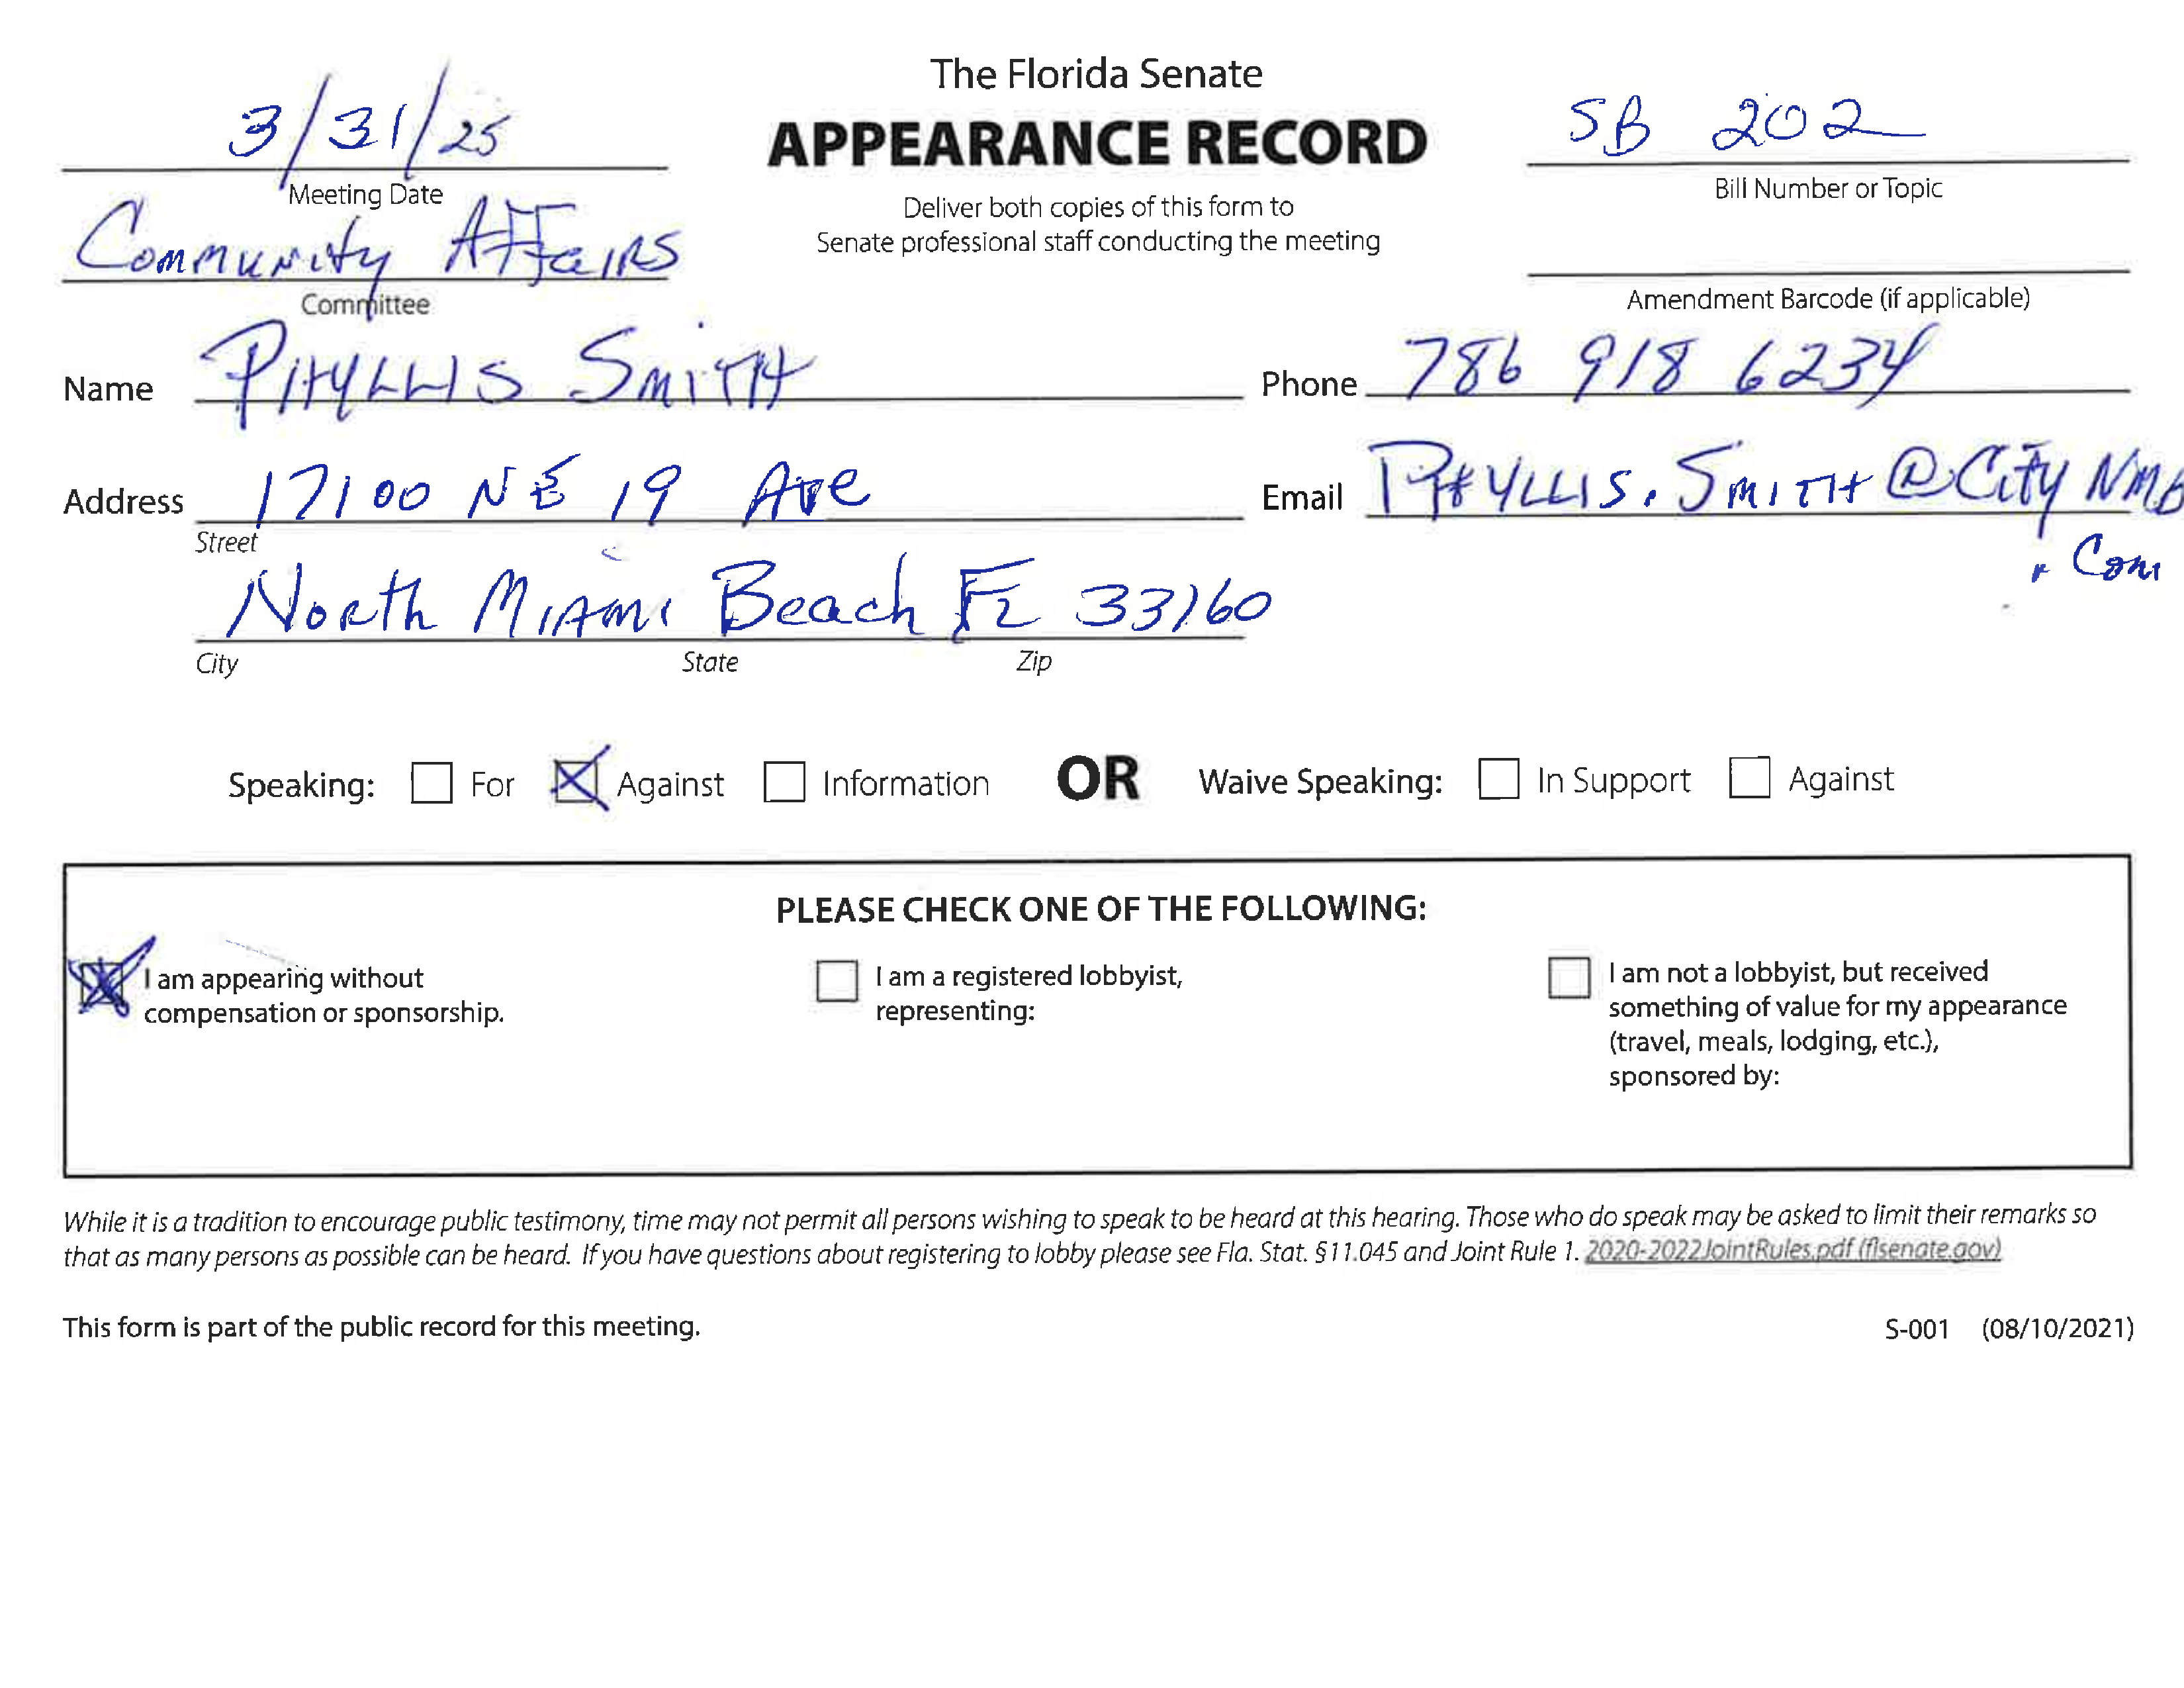 The Florida Senate
3/31/25
APPEARANCE RECORD
SB 202
Meeting Date
Bill Number or Topic
Deliver both copies of this form to
Senate professional staff conducting the meeting
Community Affairs
Committee
Amendment Barcode (if applicable)
Name PHYLLIS SMITH
Phone 786 918 6234
Address 17100 NE 19 Ave
Email PHYLLIS.SMITH@CityNMB
.Com
Street
North Miami Beach FL 33160
City State Zip
Speaking: For Against Information OR Waive Speaking: In Support Against
PLEASE CHECK ONE OF THE FOLLOWING:
I am appearing without
compensation or sponsorship.
I am a registered lobbyist,
representing:
I am not a lobbyist, but received
something of value for my appearance
(travel, meals, lodging, etc.),
sponsored by:
While it is a tradition to encourage public testimony, time may not permit all persons wishing to speak to be heard at this hearing. Those who do speak may be asked to limit their remarks so
that as many persons as possible can be heard. If you have questions about registering to lobby please see Fla. Stat. §11.045 and Joint Rule 1. 2020-2022JointRules.pdf (flsenate.gov)
This form is part of the public record for this meeting.
S-001 (08/10/2021)